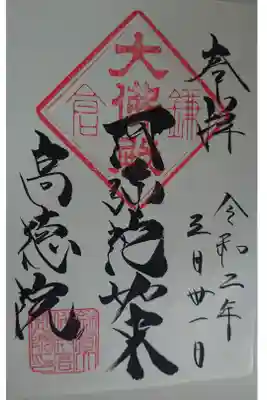 奉拝
令和二年
三月廿一日
鎌倉
大佛殿
阿弥陀如来
高徳院